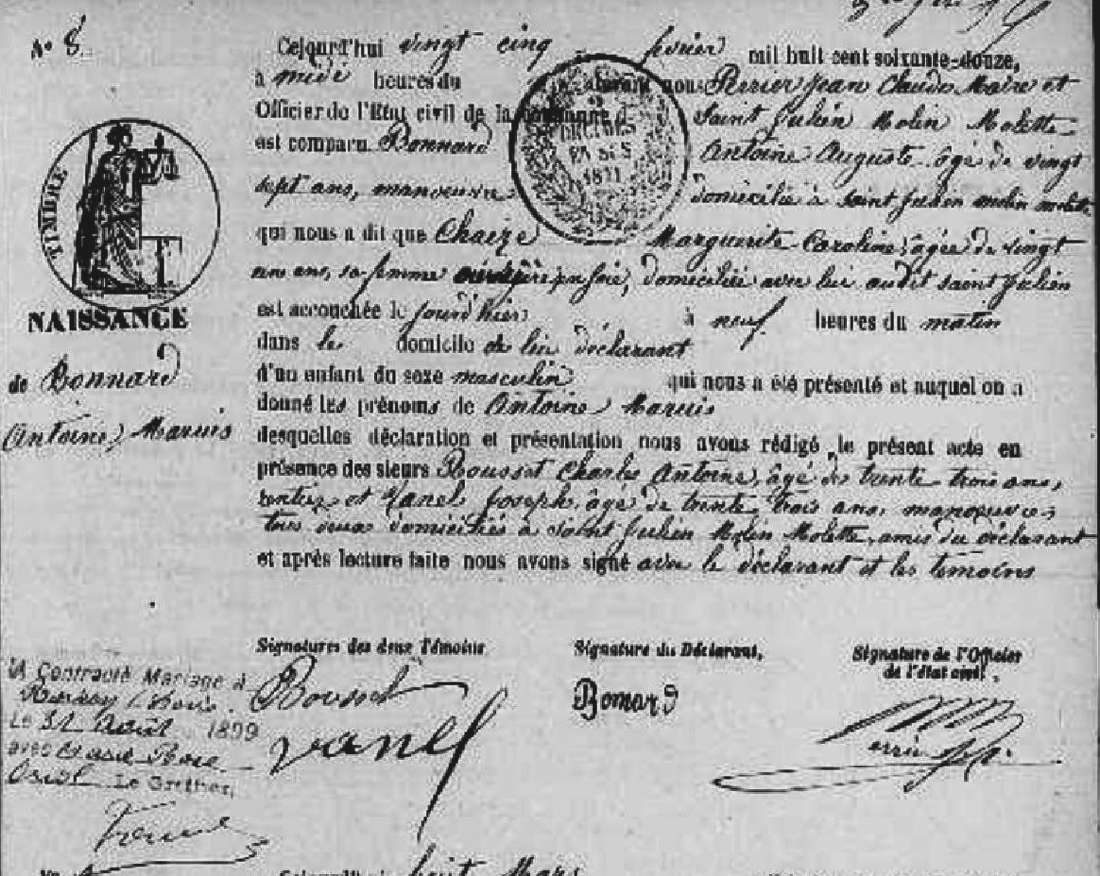 N° 8
Cejourd'hui vingt cinq février mil huit cent soixante-douze,
à midi heures du pardevant nous Perrier Jean Claude Maire et
Officier de l'Etat civil de la commune d Saint Julien Molin Molette
est comparu Bonnard Antoine Auguste âgé de vingt
sept ans, manoeuvre domicilié à Saint Julien molin molette
qui nous a dit que Chaize Marguerite Caroline, âgée de vingt
ans, sa femme en soie, domiciliée avec lui audit saint Julien
est accouchée le jourd'hier à neuf heures du matin
dans le domicile de lui déclarant
d'un enfant du sexe masculin qui nous a été présenté et auquel on a
donné les prénoms de Antoine Marius
desquelles déclaration et présentation nous avons rédigé le présent acte en
présence des sieurs Rousset Charles Antoine, âgé de trente trois ans,
rentier et Vanel Joseph, âgé de trente trois ans, manoeuvre,
tous deux domiciliés à Saint Julien Molin Molette, amis du déclarant
et après lecture faite nous avons signé avec le déclarant et les témoins
TIMBRE
1871
NAISSANCE
de Bonnard
Antoine Marius
Signatures des deux Témoins
Signature du Déclarant,
Signature de l'Officier
de l'état civil.
Rousset
Vanel
Bonnard
A Contracté Mariage à
Le 31 Août 1899
avec Marie Rose
Oriol Le Greffier,
huit Mars